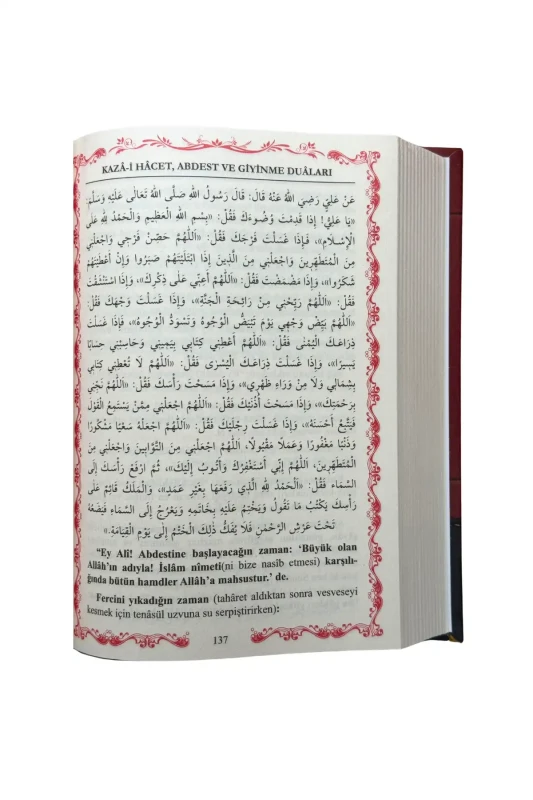 KAZÂ-İ HÂCET, ABDEST VE GİYİNME DUÂLARI
عَنْ عَلِيٍّ رَضِيَ اللهُ عَنْهُ قَالَ: قَالَ رَسُولُ اللهِ صَلَّى اللهُ تَعَالَى عَلَيْهِ وَسَلَّمَ:
«يَا عَلِيُّ! إِذَا قَدِمْتَ وُضُوءَكَ فَقُلْ: «بِسْمِ اللهِ الْعَظِيمِ وَالْحَمْدُ لِلّٰهِ عَلَى
الْإِسْلَامِ»، فَإِذَا غَسَلْتَ فَرْجَكَ فَقُلْ: «اَللّٰهُمَّ حَصِّنْ فَرْجِي وَاجْعَلْنِي
مِنَ الْمُتَطَهِّرِينَ وَاجْعَلْنِي مِنَ الَّذِينَ إِذَا ابْتَلَيْتَهُمْ صَبَرُوا وَإِنْ أَعْطَيْتَهُمْ
شَكَرُوا»، وَإِذَا مَضْمَضْتَ فَقُلْ: «اَللّٰهُمَّ أَعِنِّي عَلَى ذِكْرِكَ»، وَإِذَا اسْتَنْشَقْتَ
فَقُلْ: «اَللّٰهُمَّ رَيِّحْنِي مِنْ رَائِحَةِ الْجَنَّةِ»، وَإِذَا غَسَلْتَ وَجْهَكَ فَقُلْ:
«اَللّٰهُمَّ بَيِّضْ وَجْهِي يَوْمَ تَبْيَضُّ الْوُجُوهُ وَتَسْوَدُّ الْوُجُوهُ»، فَإِذَا غَسَلْتَ
ذِرَاعَكَ الْيُمْنَى فَقُلْ: «اَللّٰهُمَّ أَعْطِنِي كِتَابِي بِيَمِينِي وَحَاسِبْنِي حِسَابًا
يَسِيرًا»، وَإِذَا غَسَلْتَ ذِرَاعَكَ الْيُسْرَى فَقُلْ: «اَللّٰهُمَّ لَا تُعْطِنِي كِتَابِي
بِشِمَالِي وَلَا مِنْ وَرَاءِ ظَهْرِي»، وَإِذَا مَسَحْتَ رَأْسَكَ فَقُلْ: «اَللّٰهُمَّ نَجِّنِي
بِرَحْمَتِكَ»، وَإِذَا مَسَحْتَ أُذُنَيْكَ فَقُلْ: «اَللّٰهُمَّ اجْعَلْنِي مِمَّنْ يَسْتَمِعُ الْقَوْلَ
فَيَتَّبِعُ أَحْسَنَهُ»، وَإِذَا غَسَلْتَ رِجْلَيْكَ فَقُلْ: «اَللّٰهُمَّ اجْعَلْهُ سَعْيًا مَشْكُورًا
وَذَنْبًا مَغْفُورًا وَعَمَلًا مَقْبُولًا، اَللّٰهُمَّ اجْعَلْنِي مِنَ التَّوَّابِينَ وَاجْعَلْنِي مِنَ
الْمُتَطَهِّرِينَ، اَللّٰهُمَّ إِنِّي أَسْتَغْفِرُكَ وَأَتُوبُ إِلَيْكَ»، ثُمَّ ارْفَعْ رَأْسَكَ إِلَى
السَّمَاءِ فَقُلْ: «اَلْحَمْدُ لِلّٰهِ الَّذِي رَفَعَهَا بِغَيْرِ عَمَدٍ»، وَالْمَلَكُ قَائِمٌ عَلَى
رَأْسِكَ يَكْتُبُ مَا تَقُولُ وَيَخْتِمُ عَلَيْهِ بِخَاتَمِهِ وَيَعْرُجُ إِلَى السَّمَاءِ فَيَضَعُهُ
تَحْتَ عَرْشِ الرَّحْمٰنِ فَلَا يُفَكُّ ذٰلِكَ الْخَتْمُ إِلَى يَوْمِ الْقِيَامَةِ.»
"Ey Ali! Abdestine başlayacağın zaman: 'Büyük olan
Allâh'ın adıyla! İslâm nîmeti(ni bize nasib etmesi) karşılı-
ğında bütün hamdler Allâh'a mahsustur.' de.
Fercini yıkadığın zaman (tahâret aldıktan sonra vesveseyi
kesmek için tenâsül uzvuna su serpiştirirken):
137